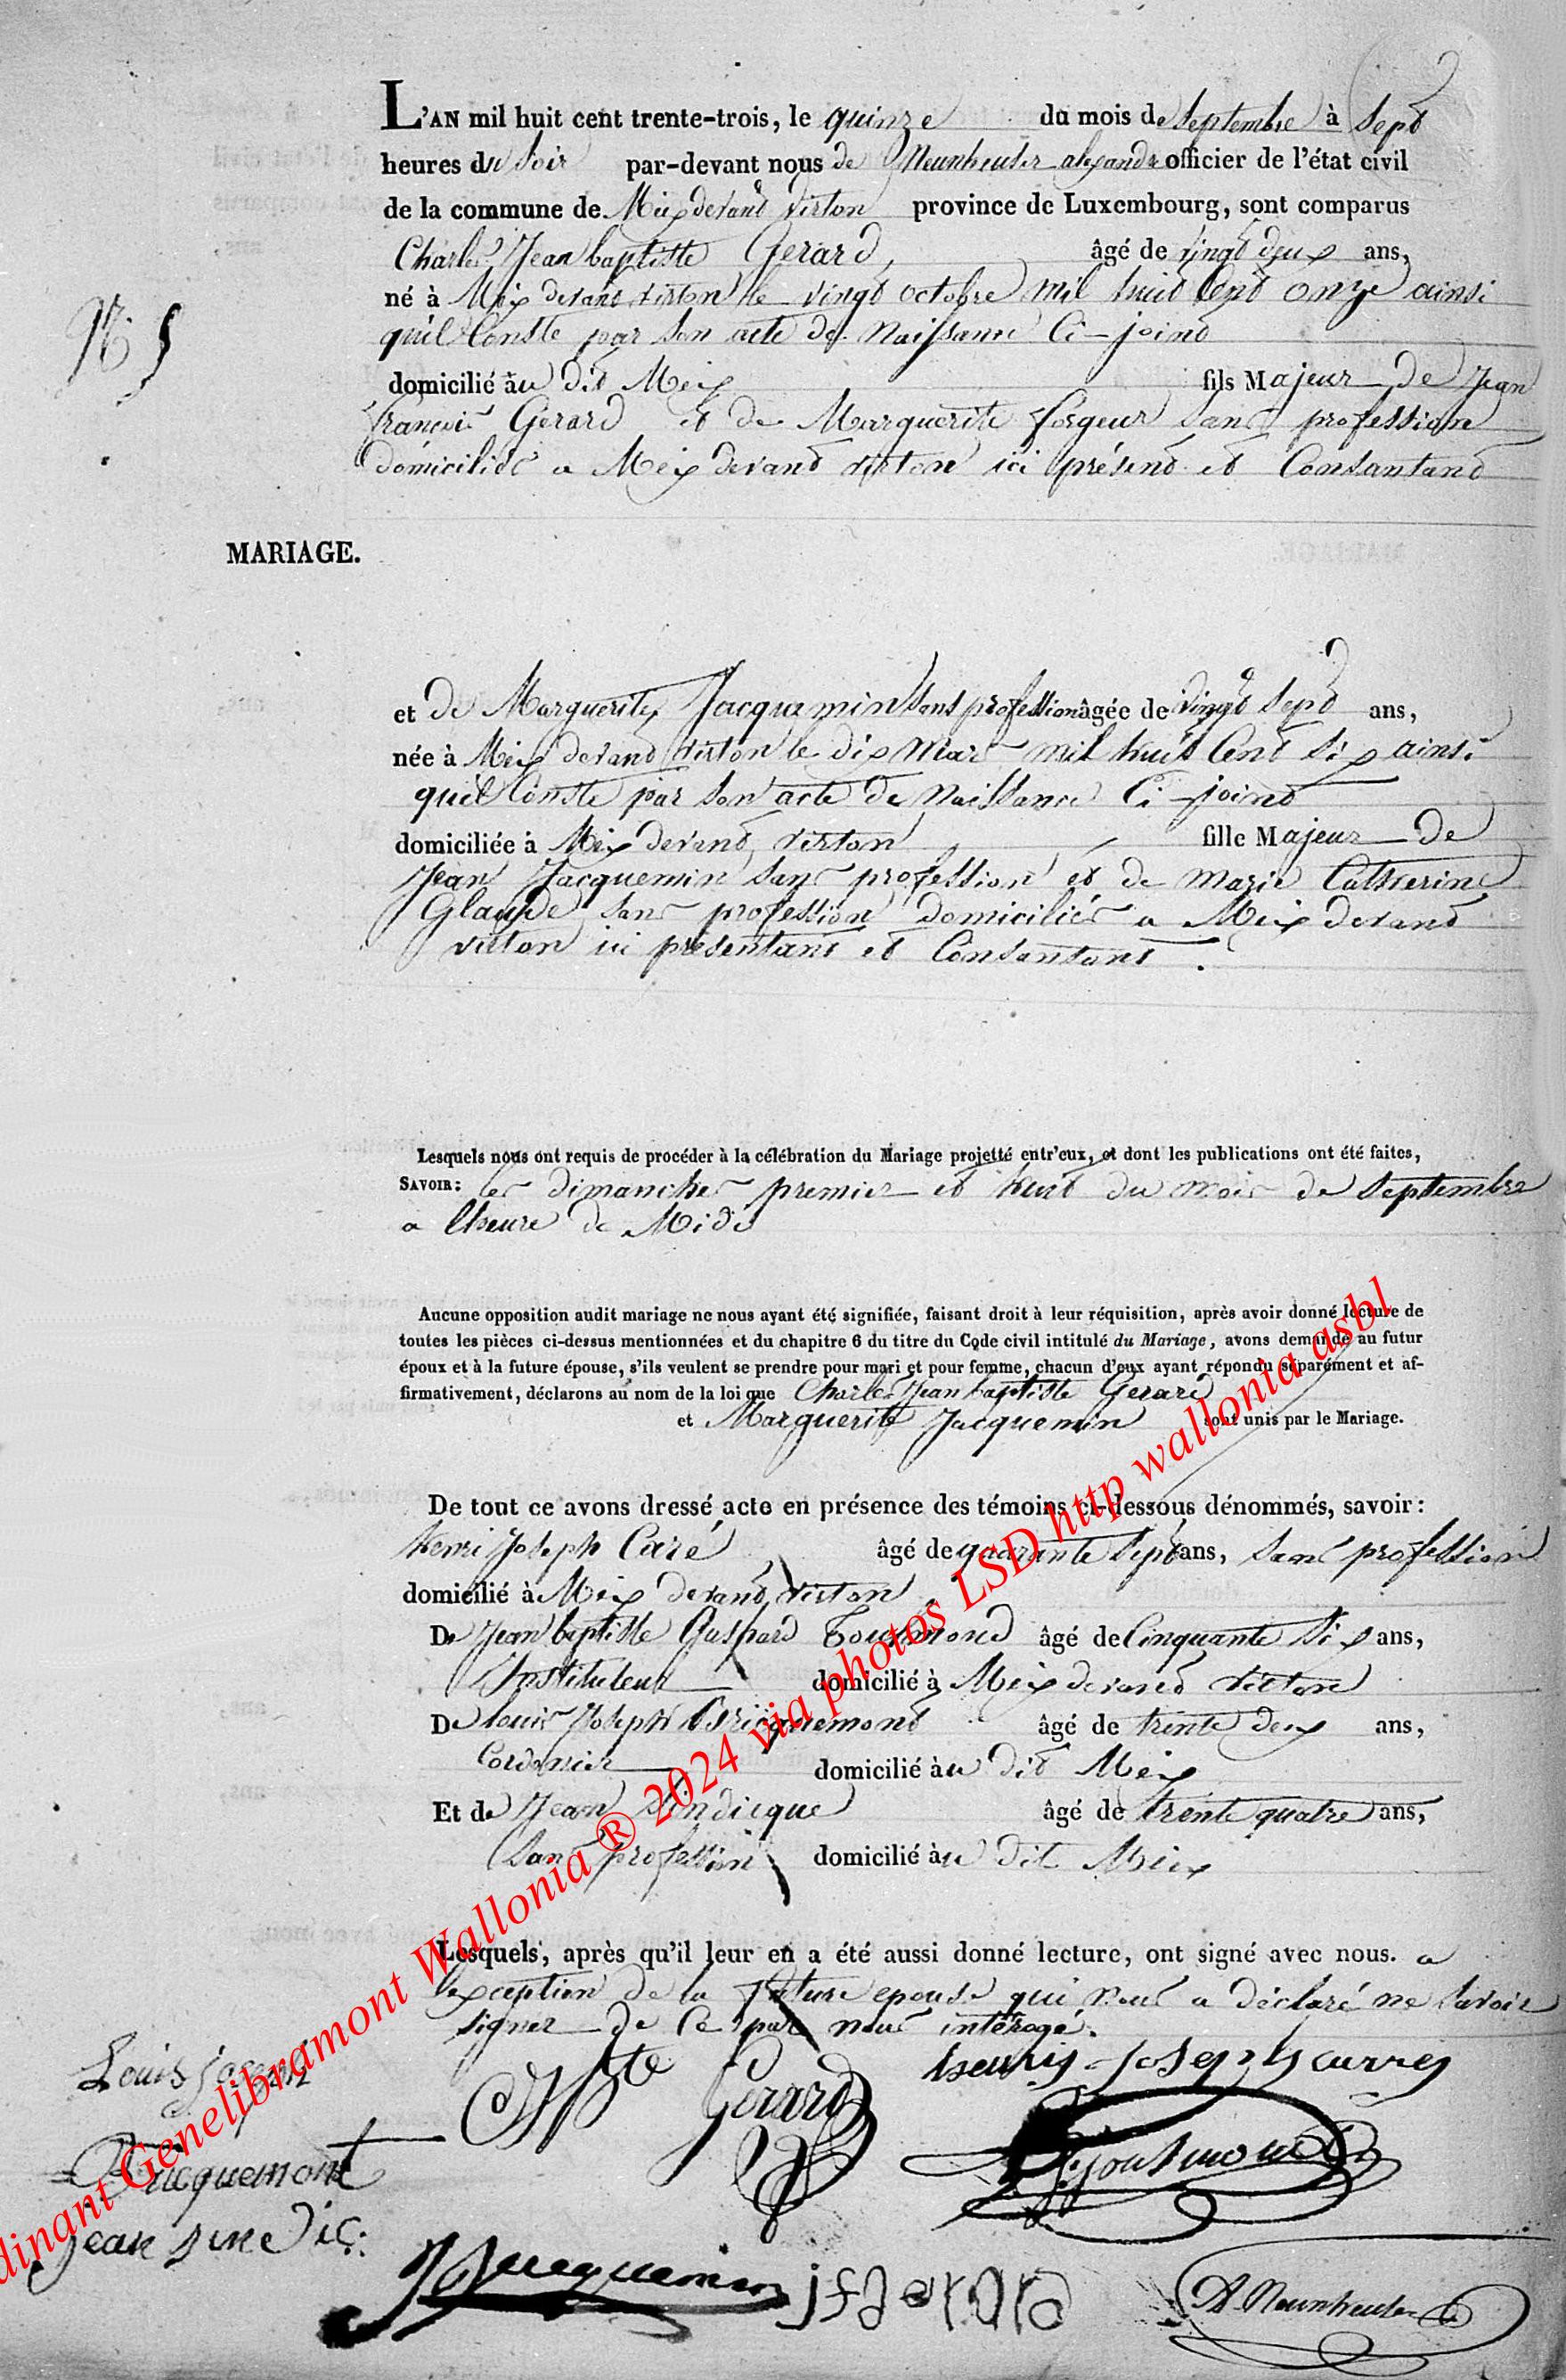 L'AN mil huit cent trente-trois, le quinze du mois de Septembre à Sept
heures du Soir par-devant nous de Neunheuser alexandre officier de l'état civil
de la commune de Meix devant Virton province de Luxembourg, sont comparus
Charles Jean baptiste Gerard, âgé de vingt deux ans,
né à Meix devant virton le vingt octobre mil huit Cent onze ainsi
qu'il Conste par Son acte de Naissance Ci-joint
N° 5
domicilié au dit Meix fils Majeur de Jean
françois Gerard et de Marguerite forgeur Sans profession
domiciliés a Meix devant virton ici présent et Consantant
MARIAGE.
et de Marguerite Jacquemin Sans profession âgée de Vingt Sept ans,
née à Meix devant virton le dix Mars mil huit Cent Six ainsi
qu'il Conste par Son acte de Naissance Ci-joint
domiciliée à Meix devant virton fille Majeur de
Jean Jacquemin Sans profession et de Marie Catherine
Glaude Sans profession domiciliés a Meix devant
virton ici présentant et Consantant.
Lesquels nous ont requis de procéder à la célébration du Mariage projetté entr'eux, et dont les publications ont été faites,
SAVOIR: les dimanches premier et huit du mois de Septembre
a l'heure de Midi
Aucune opposition audit mariage ne nous ayant été signifiée, faisant droit à leur réquisition, après avoir donné lecture de
toutes les pièces ci-dessus mentionnées et du chapitre 6 du titre du Code civil intitulé du Mariage, avons demandé au futur
époux et à la future épouse, s'ils veulent se prendre pour mari et pour femme, chacun d'eux ayant répondu séparément et af-
firmativement, déclarons au nom de la loi que Charles Jean baptiste Gerard
et Marguerite Jacquemin sont unis par le Mariage.
De tout ce avons dressé acte en présence des témoins ci-dessous dénommés, savoir:
henri Joseph Caré âgé de quarante Sept ans, Sans profession
domicilié à Meix devant virton
De Jean baptiste Gaspard Toussmond âgé de Cinquante Six ans,
Instituteur domicilié à Meix devant virton
De louis Joseph Bricquemont âgé de trente deux ans,
Cordonier domicilié au dit Meix
Et de Jean Sindicque âgé de trente quatre ans,
Sans profession domicilié au dit Meix
Lesquels, après qu'il leur en a été aussi donné lecture, ont signé avec nous. a
lexception de la future epouse qui nous a déclaré ne Savoir
Signer de Ce par nous intérogé.
Louis joseph
Bricquemont
jean sindic
Gerard
henry Joseph Carrey
Jacquemin
jf gerard
A Neunheuser
dinant Genelibramont Wallonia ® 2024 via photos LSD http wallonia asbl